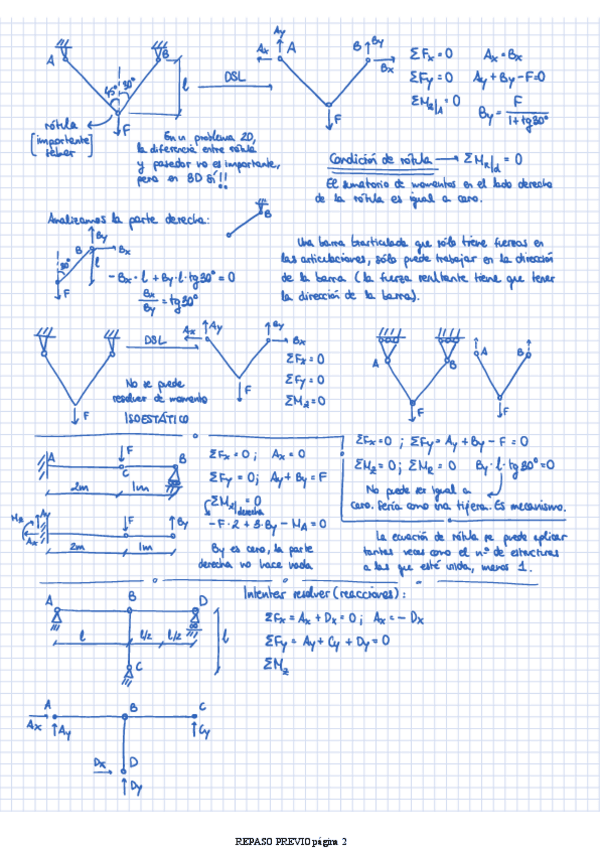 A
B
45°
30°
l
F
DSL
Ay
Ax
A
B
By
Bx
F
ΣFx = 0
Ax = Bx
ΣFy = 0
Ay + By - F = 0
By = F / (1 + tg 30°)
rótula
[importante]
En un problema 2D,
la diferencia entre rótula
y pasador no es importante,
pero en 3D sí!!
Condición de rótula → ΣMR|d = 0
El sumatorio de momentos en el lado derecho
de la rótula es igual a cero.
Analizamos la parte derecha:
B
By
B
Bx
30°
l
F
-Bx·l + By·l·tg30° = 0
Bx/By = tg30°
Una barra biarticulada que sólo tiene fuerzas en
las articulaciones, sólo puede trabajar en la dirección
de la barra (la fuerza resultante tiene que tener
la dirección de la barra).
F
DSL
Ax
Ay
By
Bx
F
ΣFx = 0
ΣFy = 0
ΣMz = 0
No se puede
resolver de momento
ISOESTÁTICO
A
B
F
A
B
F
A
F
C
B
2m
1m
ΣFx = 0; Ax = 0
ΣFy = 0; Ay + By = F
derecha
-F·2 + 3·By - MA = 0
By es cero, la parte
derecha no hace nada
MA
Ay
Ax
F
By
2m
1m
ΣFx = 0 ; ΣFy = Ay + By - F = 0
ΣMz = 0; ΣMR = 0 By·l·tg30° = 0
No puede ser igual a
cero. Sería como una tijera. Es mecanismo.
La ecuación de rótula se puede aplicar
tantas veces como el nº de estructuras
a las que esté unida, menos 1.
Intentar resolver (reacciones):
A
B
D
l
l/2
l/2
l
C
ΣFx = Ax + Dx = 0; Ax = - Dx
ΣFy = Ay + Cy + Dy = 0
ΣMz
A
B
C
Ax
Ay
Cy
Dx
D
Dy
REPASO PREVIO página 2